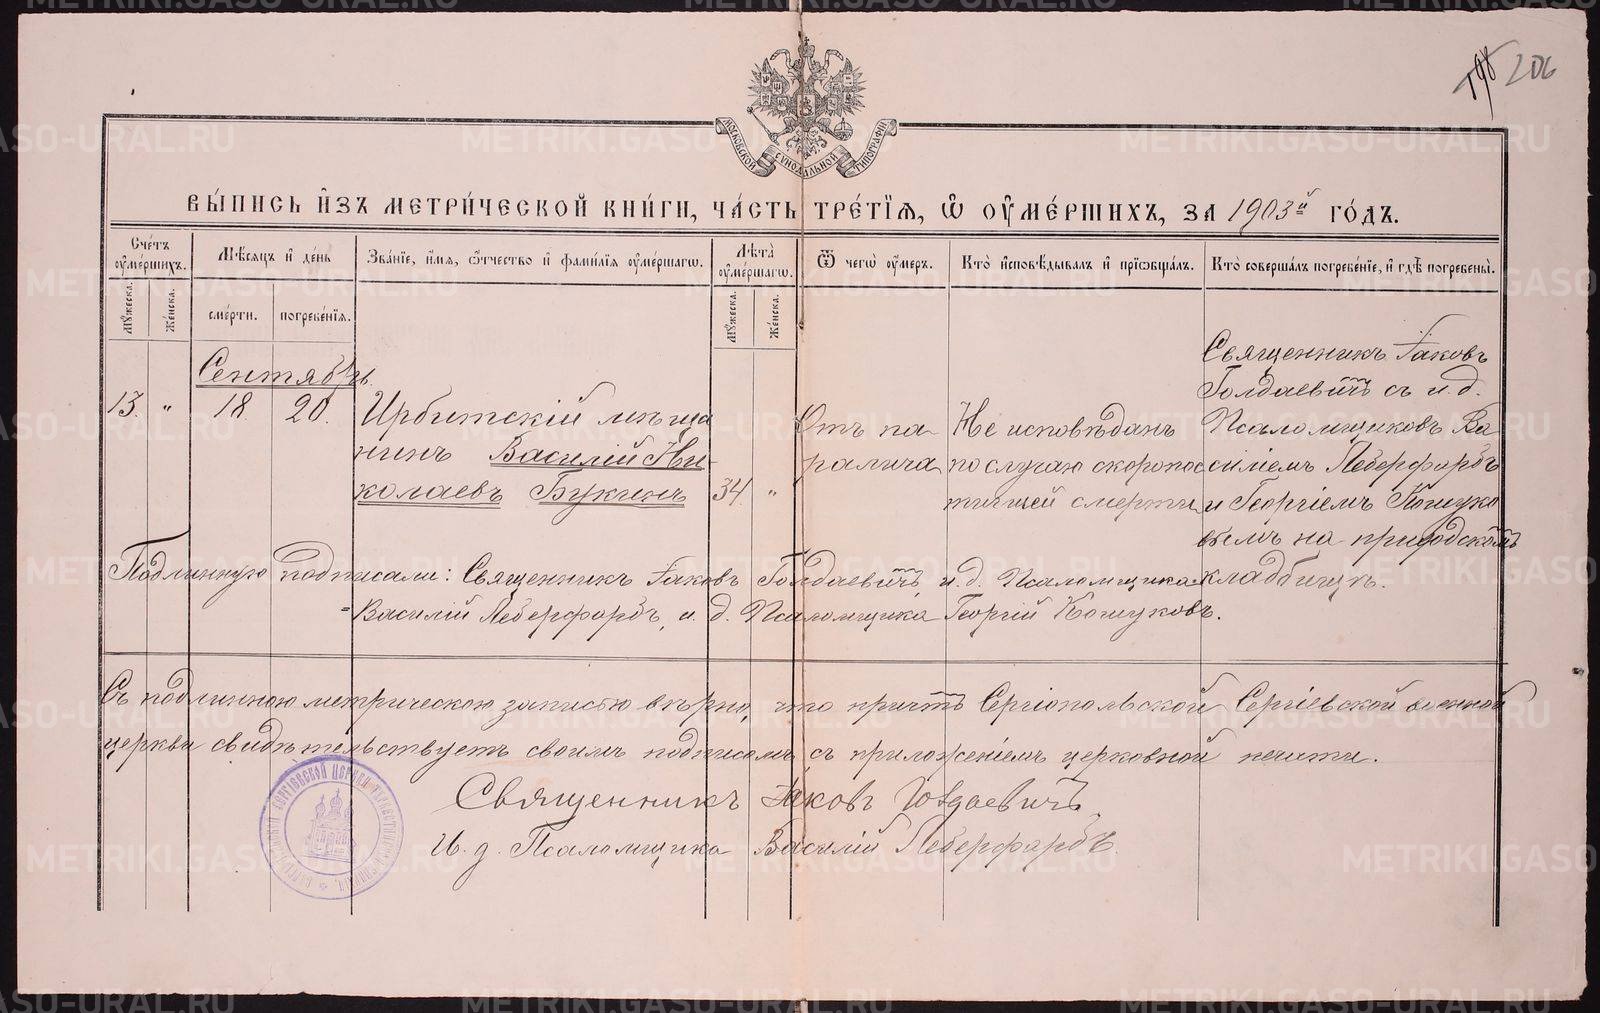 198 206
МОСКОВСКОЙ СУНОДАЛЬНОЙ ТИПОГРАФІИ
ВЫ́ПИСЬ И҆ЗЪ МЕТРИ́ЧЕСКОЙ КНИ́ГИ, ЧА́СТЬ ТРЕ́ТЇѦ, Ѿ ОУ҆МЕ́РШИХЪ, ЗА 1903й ГО́ДЪ.
Сче́тъ оу҆ме́ршихъ.
Мѣ́сяцъ и҆ де́нь
Зва́нїе, и҆́мѧ, ѻ҆́тчество и҆ фами́лїѧ оу҆ме́ршагѡ.
Лѣ́та оу҆ме́ршагѡ.
Ѿ чегѡ̀ оу҆́меръ.
Кто̀ и҆сповѣ́дывалъ и҆ прїѡбща́лъ.
Кто̀ соверша́лъ погребе́нїе, и҆ гдѣ̀ погребены̀.
Мꙋ́жеска.
Же́нска.
сме́рти.
погребе́нїѧ.
Мꙋ́жеска.
Же́нска.
Сентябрь.
13. " 18. 20.
Ирбитскій мѣща
нинъ Василій Ни-
колаевъ Букинъ
34 "
Отъ па-
ралича
Не исповѣданъ
по случаю скоропос
тигшей смерти
Священникъ Іаковъ
Голдаевичъ съ и.д.
Псаломщиковъ Ва-
силіемъ Леберфарбъ
и Георгіемъ Кошуко
вымъ на приходскомъ
кладбищѣ.
Подлинную подписали: Священникъ Іаковъ Голдаевичъ, и.д. Псаломщика
Василій Леберфарбъ, и.д. Псаломщика Георгій Кошуковъ.
Съ подлинною метрическою записью вѣрно, что причтъ Сергіопольской Сергіевской военной
церкви свидѣтельствуетъ своимъ подписомъ съ приложеніемъ церковной печати.
Священникъ Іаковъ Голдаевичъ
И.д. Псаломщика Василій Леберфарбъ
METRIKI.GASO-URAL.RU